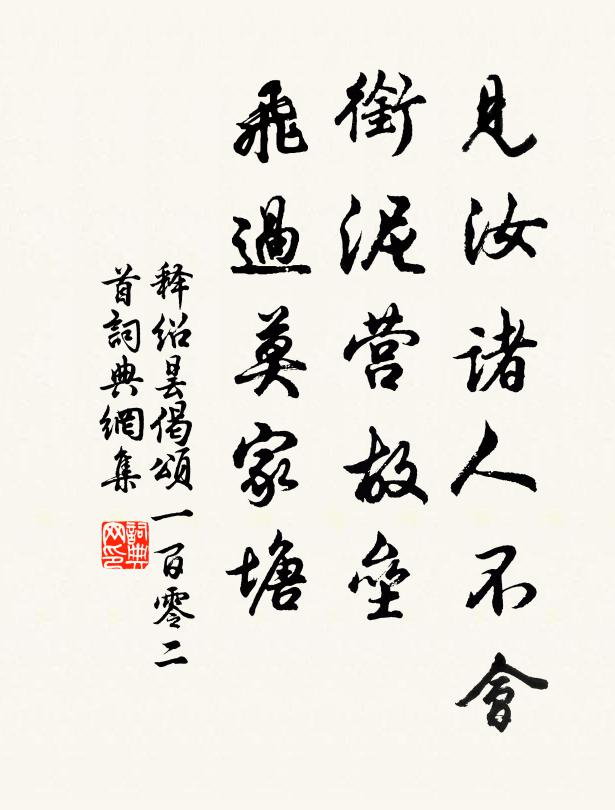 見汝諸人不會
銜泥营故壘
飛過莫家塘
释紹曇偈頌一百零二
首詞典網集
詞典网印